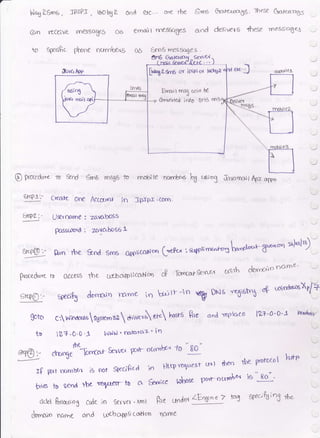 Way2Sms, IPIPI, 160by2 and etc... are the Sms Gateways. These Gateways
can receive messages as email messages and delivers these messages
to specific phone numbers as Sms messages.
Sms Gateway Server
Java App
using
java mail api
email
Email msg
Way2sms or ipipi or 160by2 and etc...
Email msg will be
converted into sms msg
Deliver
msgs
mobile1
mobile2
mobile3
procedure to Send Sms msgs to mobile numbers by using Javamail Api apps
step1: create one Account in Ipipi.com
step2: Username : zavaboss
password : zavaboss1
step3: Run the Send Sms application (refer : supplementary handout given on
procedure to access the webapplication of Tomcat Server with domain name.
step1: specify domain name in built-in DNS registry of windows Xp/7
goto C:\Windows\System32\drivers\etc\hosts file and replace 127.0.0.1
to 127.0.0.1 www.nataraz.in
step2: change the Tomcat Server port number to "80"
If port number is not specified in Http request url then the protocol http
tries to send the request to a Service whose port number is "80".
add following code in server.xml file under <Engine> tag specifying the
domain name and webapplication name